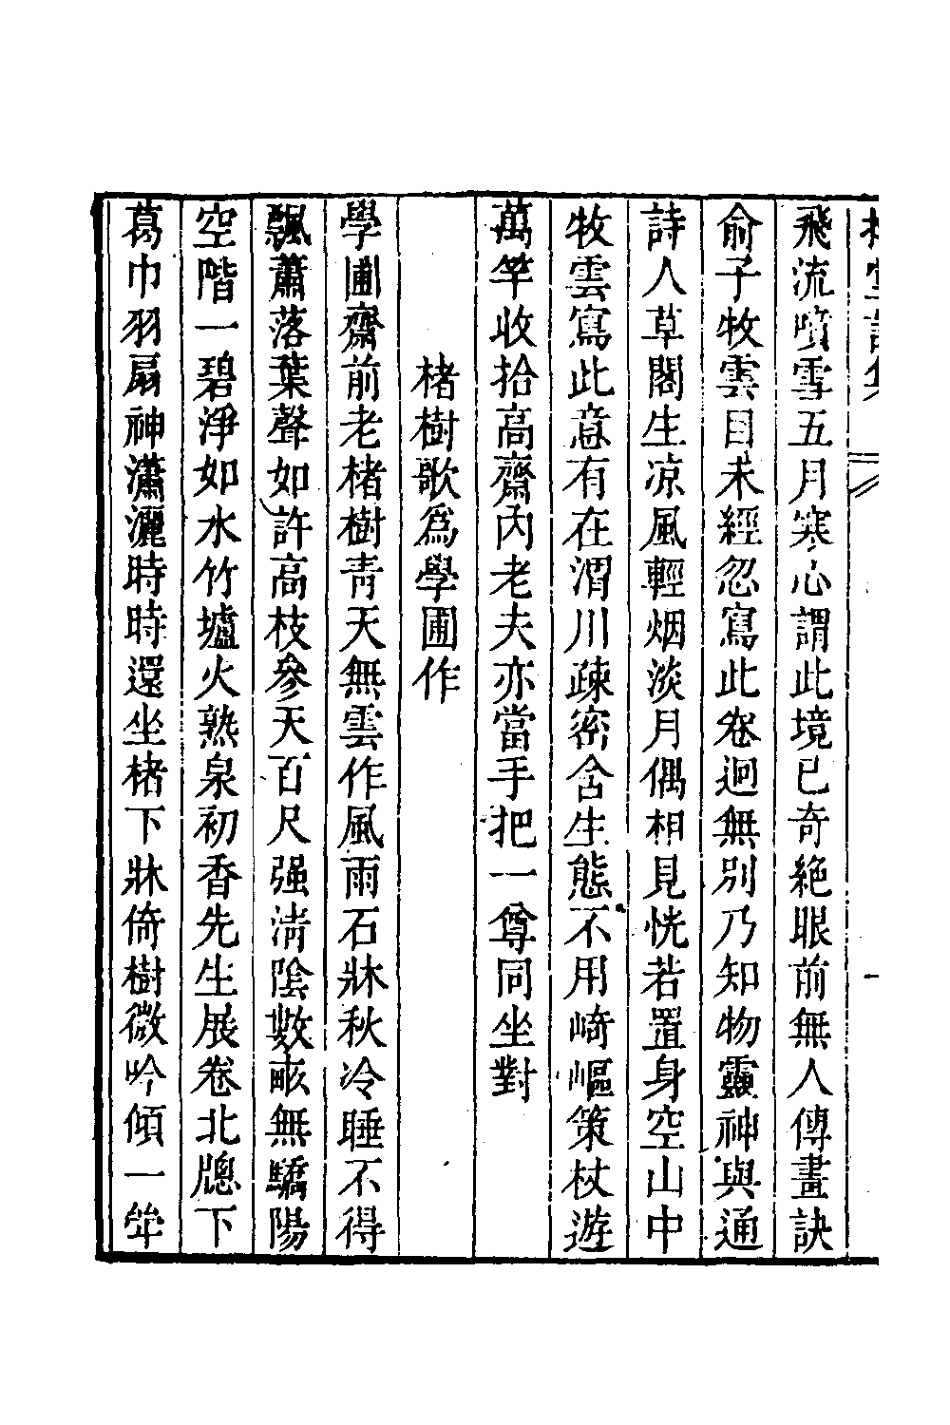 飛流噴雪五月寒心謂此境已奇絶眼前無人傳畫訣
俞子牧雲目未經忽寫此卷迥無別乃知物靈神與通
詩人草閣生凉風輕烟淡月偶相見恍若置身空山中
牧雲寫此意有在渭川疎密含生態不用崎嶇策杖遊
萬竿收拾高齋內老夫亦當手把一尊同坐對
楮樹歌爲學圃作
學圃齋前老楮樹青天無雲作風雨石牀秋冷睡不得
飄蕭落葉聲如許高枝參天百尺强淸陰數畝無驕陽
空階一碧淨如水竹爐火熟泉初香先生展卷北牕下
葛巾羽扇神瀟灑時時還坐楮下牀倚樹微吟傾一斝